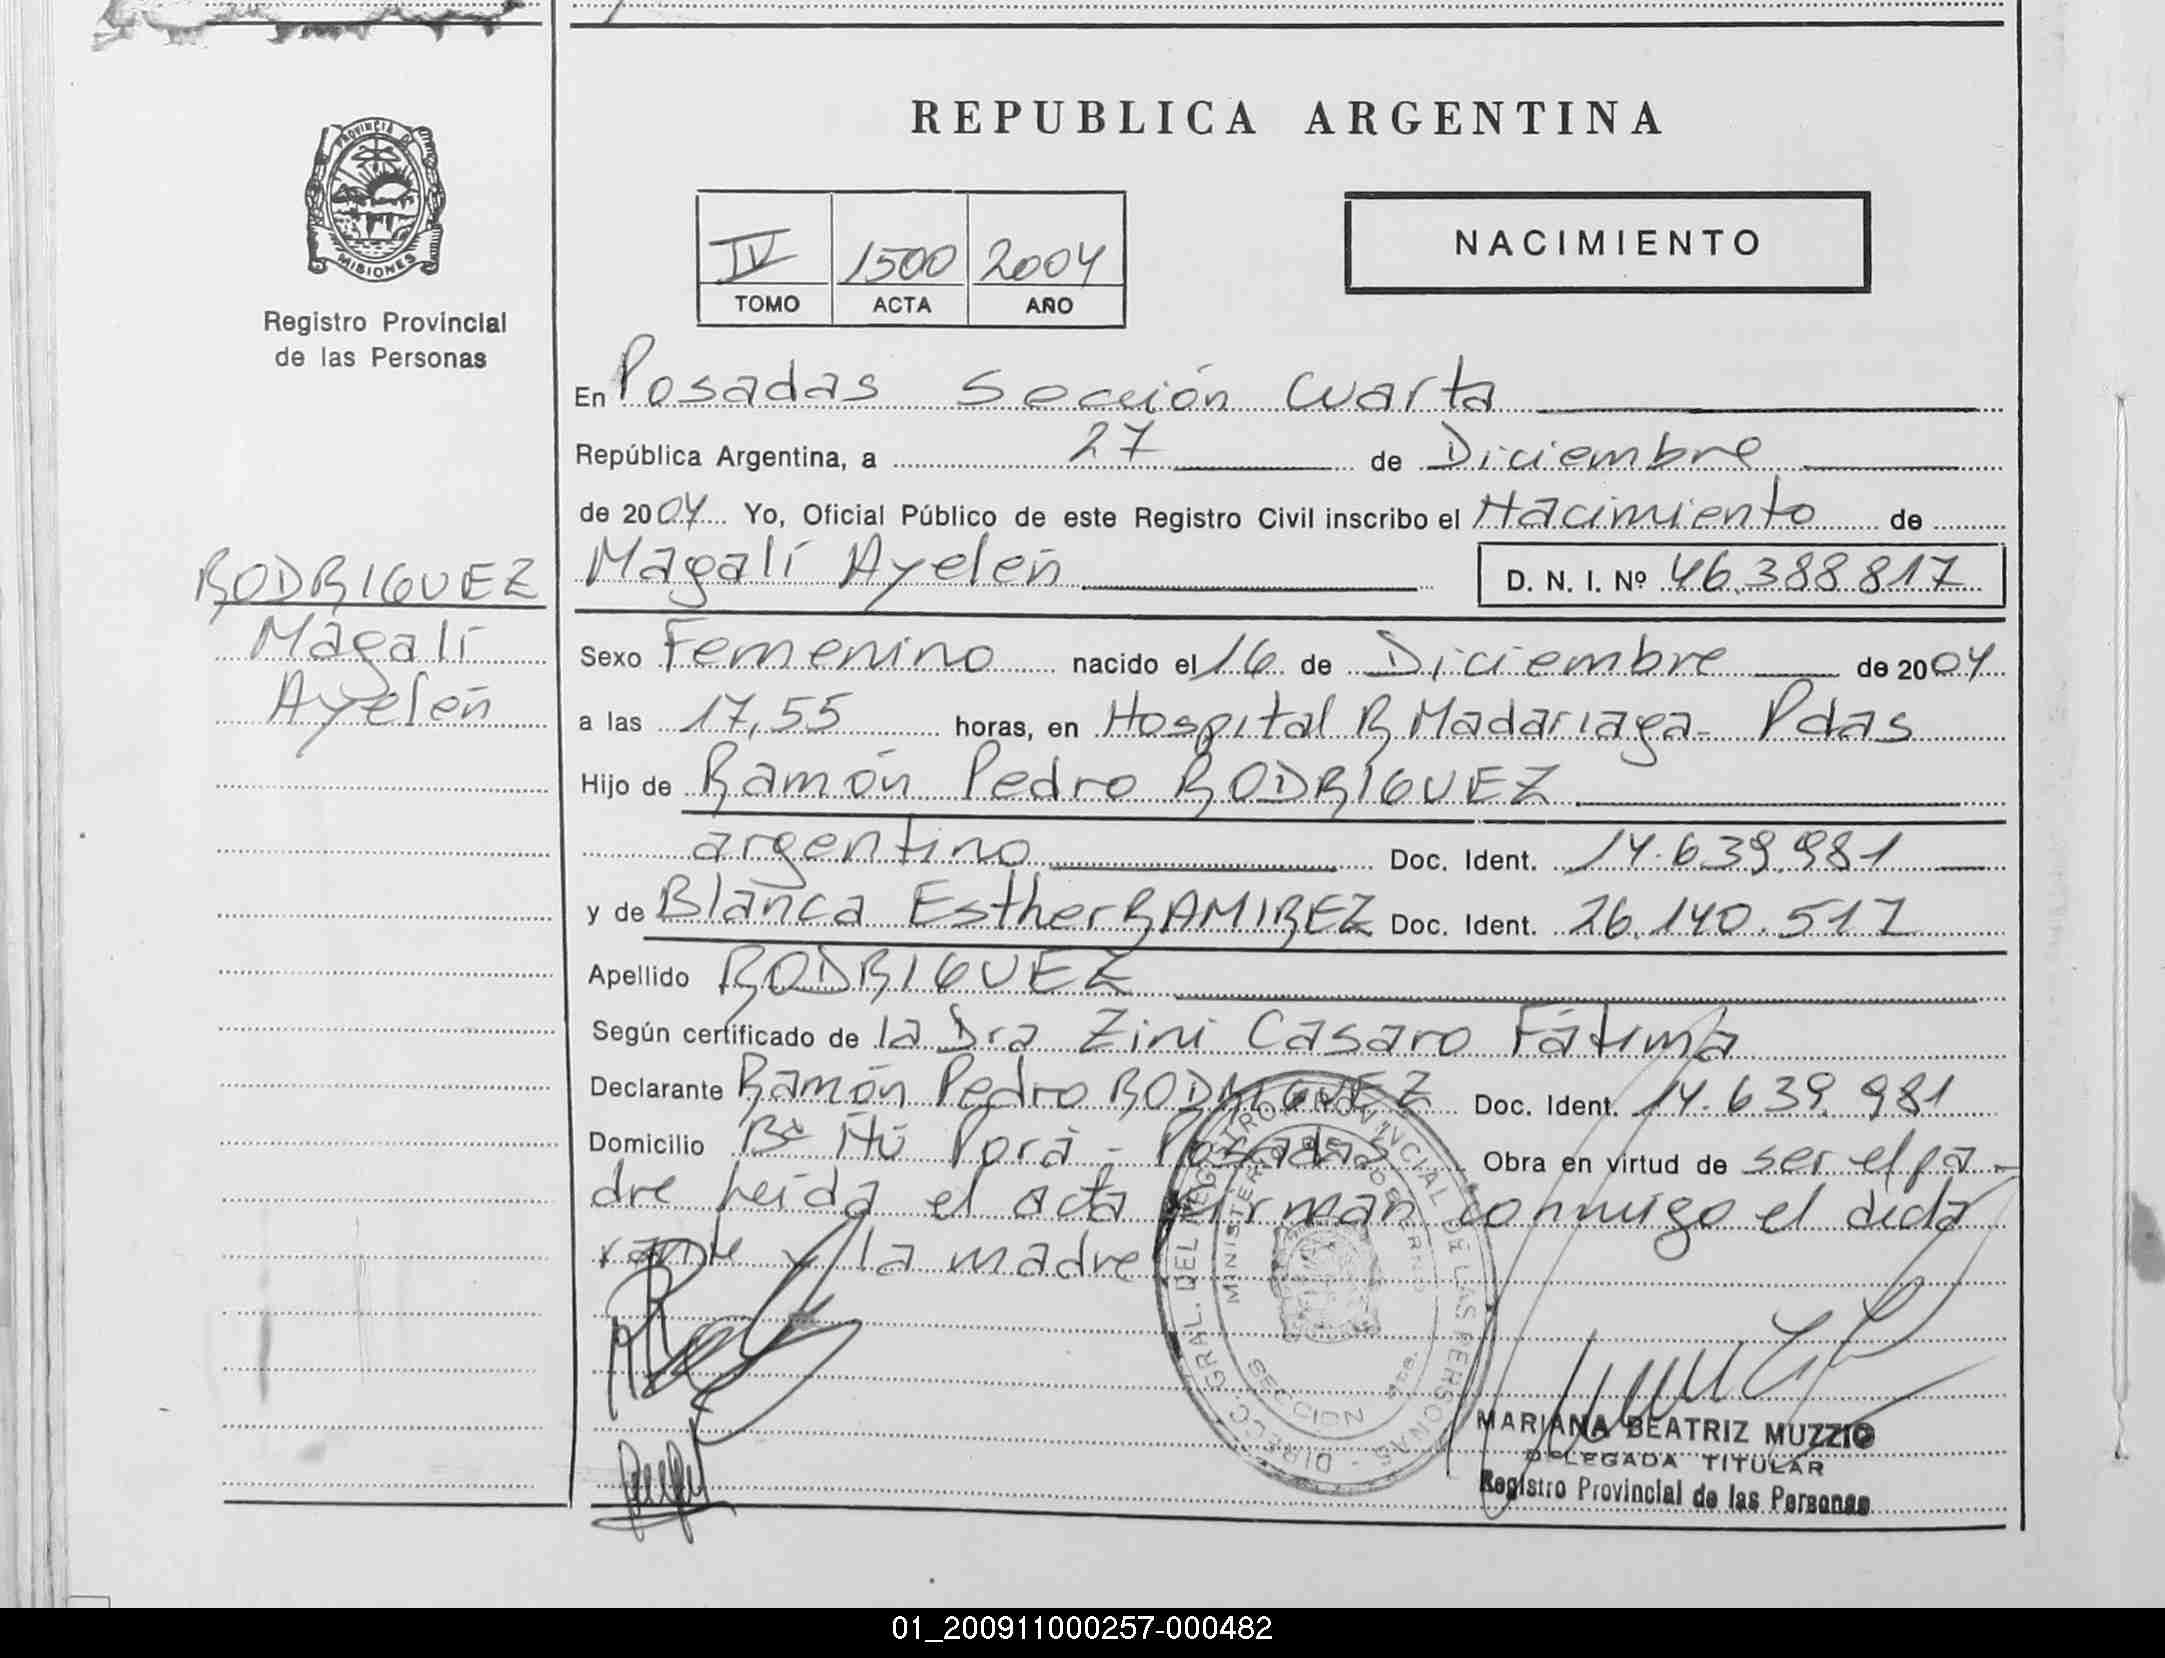 REPUBLICA ARGENTINA
PROVINCIA DE
MISIONES
Registro Provincial
de las Personas
IV 1500 2004
TOMO ACTA AÑO
NACIMIENTO
En Posadas Sección Cuarta
República Argentina, a 27 de Diciembre
de 2004 Yo, Oficial Público de este Registro Civil inscribo el Nacimiento de
Magalí Ayelén D. N. I. Nº 46.388.817
RODRIGUEZ
Magalí
Ayelén
Sexo Femenino nacido el 16 de Diciembre de 2004
a las 17,55 horas, en Hospital R Madariaga - Pdas
Hijo de Ramón Pedro RODRIGUEZ
argentino Doc. Ident. 14.639.981
y de Blanca Esther RAMIREZ Doc. Ident. 26.140.517
Apellido RODRIGUEZ
Según certificado de la Dra Zini Casaro Fátima
Declarante Ramón Pedro RODRIGUEZ Doc. Ident. 14.639.981
Domicilio Bº Itú Porá - Posadas Obra en virtud de ser el pa-
dre leida el acta firman conmigo el decla
rante y la madre
DIREC. GRAL. DEL REGISTRO PROVINCIAL DE LAS PERSONAS
MINISTERIO DE GOBIERNO
SECCION
MARIANA BEATRIZ MUZZIO
DELEGADA TITULAR
Registro Provincial de las Personas
01_200911000257-000482